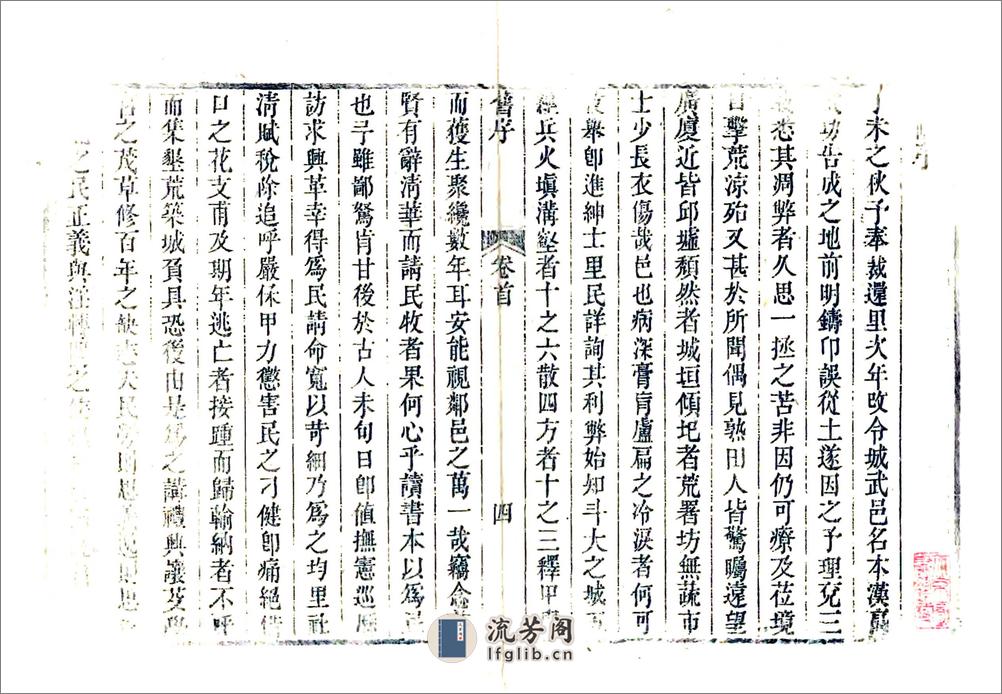 未之秋予奉裁還里次年改令城武邑名本漢
功告成之地前明鑄印誤從土遂因之予理兗三
悉其凋弊者久思一拯之苦非因仍可療及莅境
目擊荒涼殆又甚於所聞偶見熟田人皆驚矚遠望
廣廈近皆邱墟頹然者城垣傾圯者荒署坊無蔬市
士少長衣傷哉邑也病深膏肓盧扁之冷淚者何可
舉卽進紳士里民詳詢其利弊始知斗大之城
經兵火塡溝壑者十之六散四方者十之三釋甲
舊序
卷首
四
而獲生聚纔數年耳安能視鄰邑之萬一哉竊念
賢有辭淸華而請民牧者果何心乎讀書本以爲
也予雖鄙駑肯甘後於古人未旬日卽值撫憲巡
訪求興革幸得爲民請命寬以苛細乃爲之均里社
淸賦稅除追呼嚴保甲力懲害民之刁健卽痛絕
口之花支甫及期年逃亡者接踵而歸輸納者不呼
而集墾荒築城負具恐後由是爲之講禮興讓
之茂草修百年之缺
之民正義與
流芳阁
lfglib.cn